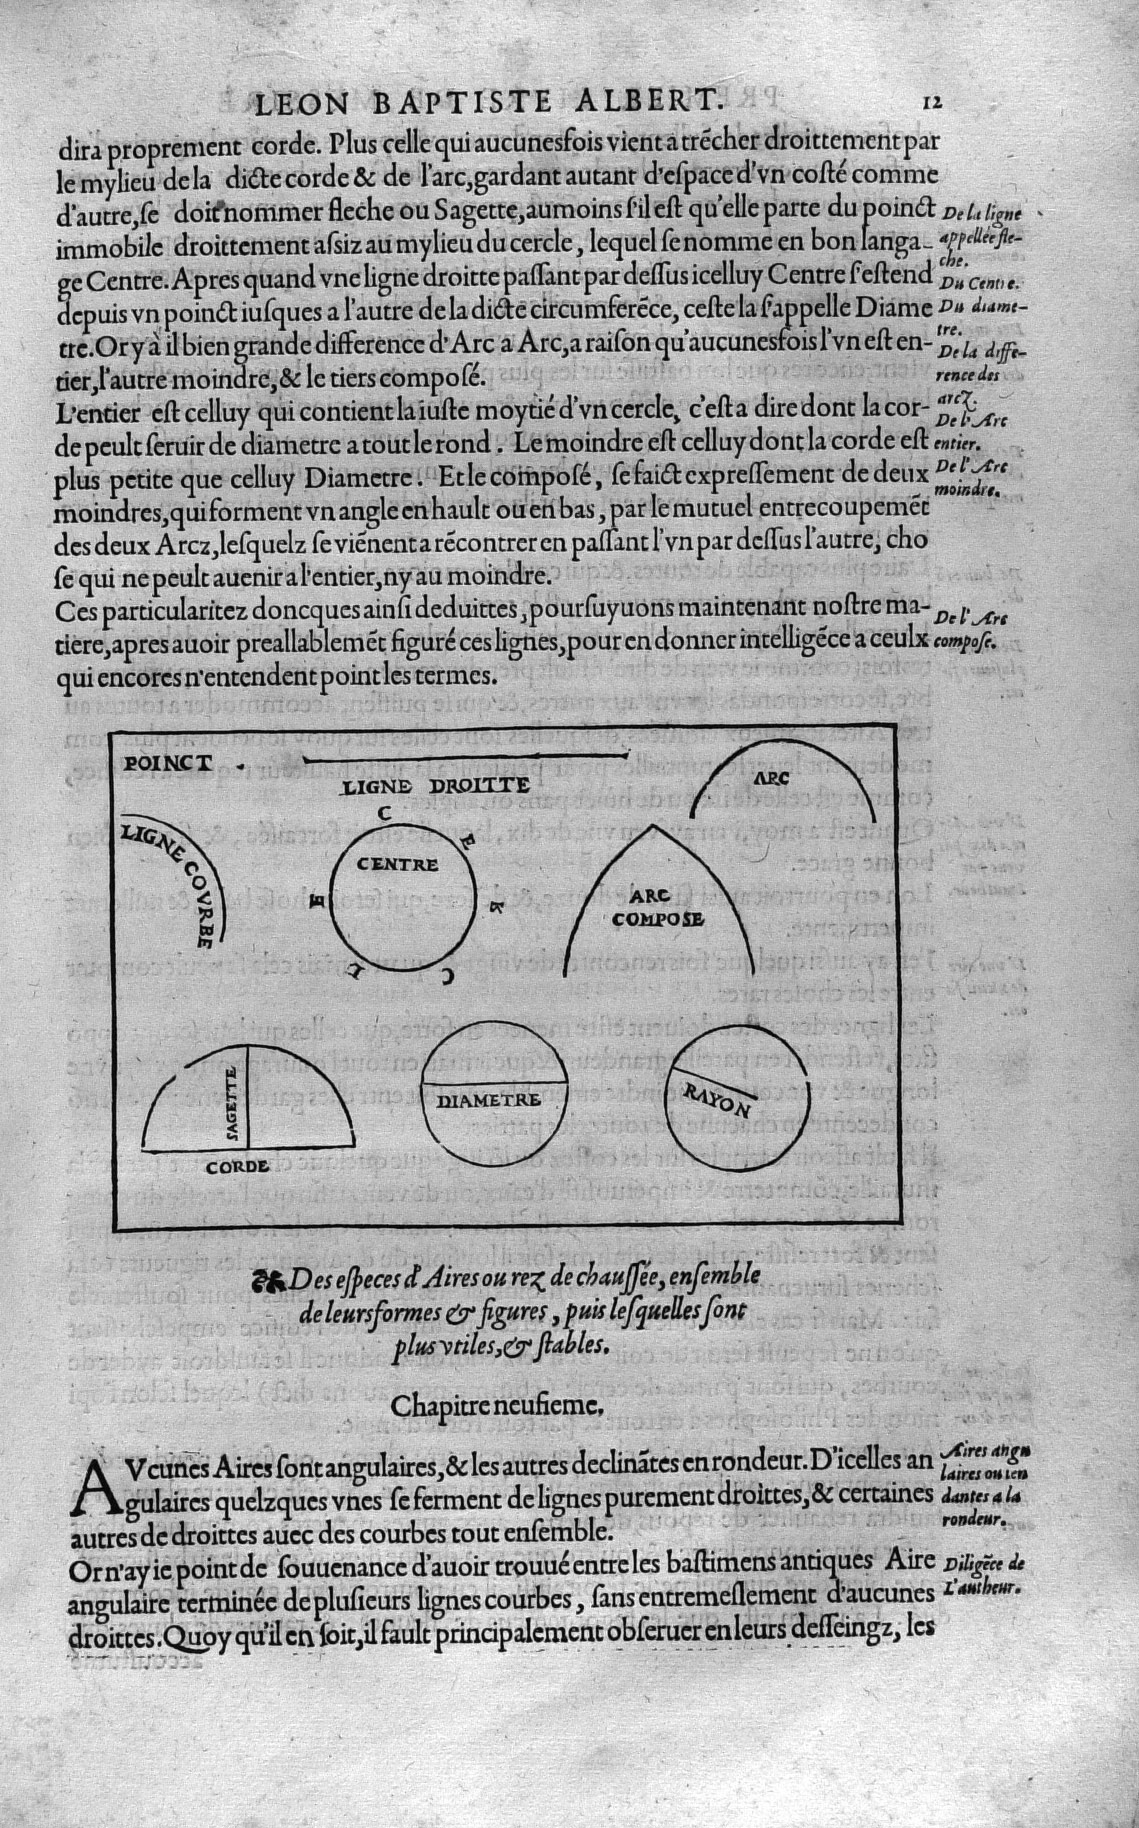 LEON BAPTISTE ALBERT. 12
dira proprement corde. Plus celle qui aucunesfois vient a trẽcher droittement par
le mylieu de la dicte corde & de l'arc, gardant autant d'eſpace d'vn coſté comme
d'autre, ſe doit nommer fleche ou Sagette, aumoins ſ'il eſt qu'elle parte du poinct
immobile droittement aſsiz au mylieu du cercle, lequel ſe nomme en bon langa-
ge Centre. Apres quand vne ligne droitte paſſant par deſſus icelluy Centre ſ'eſtend
depuis vn poinct iuſques a l'autre de la dicte circumferẽce, ceſte la ſ'appelle Diame
tre. Or y à il bien grande difference d'Arc a Arc, a raiſon qu'aucunesfois l'vn eſt en-
tier, l'autre moindre, & le tiers compoſé.
L'entier eſt celluy qui contient la iuſte moytié d'vn cercle, c'eſt a dire dont la cor-
de peult ſeruir de diametre a tout le rond. Le moindre eſt celluy dont la corde eſt
plus petite que celluy Diametre. Et le compoſé, ſe faict expreſſement de deux
moindres, qui forment vn angle en hault ou en bas, par le mutuel entrecoupemẽt
des deux Arcz, leſquelz ſe viẽnent a rẽcontrer en paſſant l'vn par deſſus l'autre, cho
ſe qui ne peult auenir a l'entier, ny au moindre.
Ces particularitez doncques ainſi deduittes, pourſuyuons maintenant noſtre ma-
tiere, apres auoir preallablemẽt figuré ces lignes, pour en donner intelligẽce a ceulx
qui encores n'entendent point les termes.
De la ligne
appellée fle-
che.
Du Centre.
Du diame-
tre.
De la diffe-
rence des
arcz.
De l'Arc
entier.
De l'Arc
moindre.
De l'Arc
compoſe.
POINCT .
LIGNE DROITTE
ARC
LIGNE COVRBE
CENTRE
C
E
R
C
L
E
ARC
COMPOSE
SAGETTE
CORDE
DIAMETRE
RAYON
Des eſpeces d'Aires ou rez de chauſſée, enſemble
de leurs formes & figures, puis leſquelles ſont
plus vtiles, & ſtables.
Chapitre neufieme.
AVcunes Aires ſont angulaires, & les autres declinãtes en rondeur. D'icelles an
gulaires quelzques vnes ſe ferment de lignes purement droittes, & certaines
autres de droittes auec des courbes tout enſemble.
Or n'ay ie point de ſouuenance d'auoir trouué entre les baſtimens antiques Aire
angulaire terminée de pluſieurs lignes courbes, ſans entremeſlement d'aucunes
droittes. Quoy qu'il en ſoit, il fault principalement obſeruer en leurs deſſeingz, les
Aires angu
laires ou ten
dantes a la
rondeur.
Diligẽce de
L'autheur.